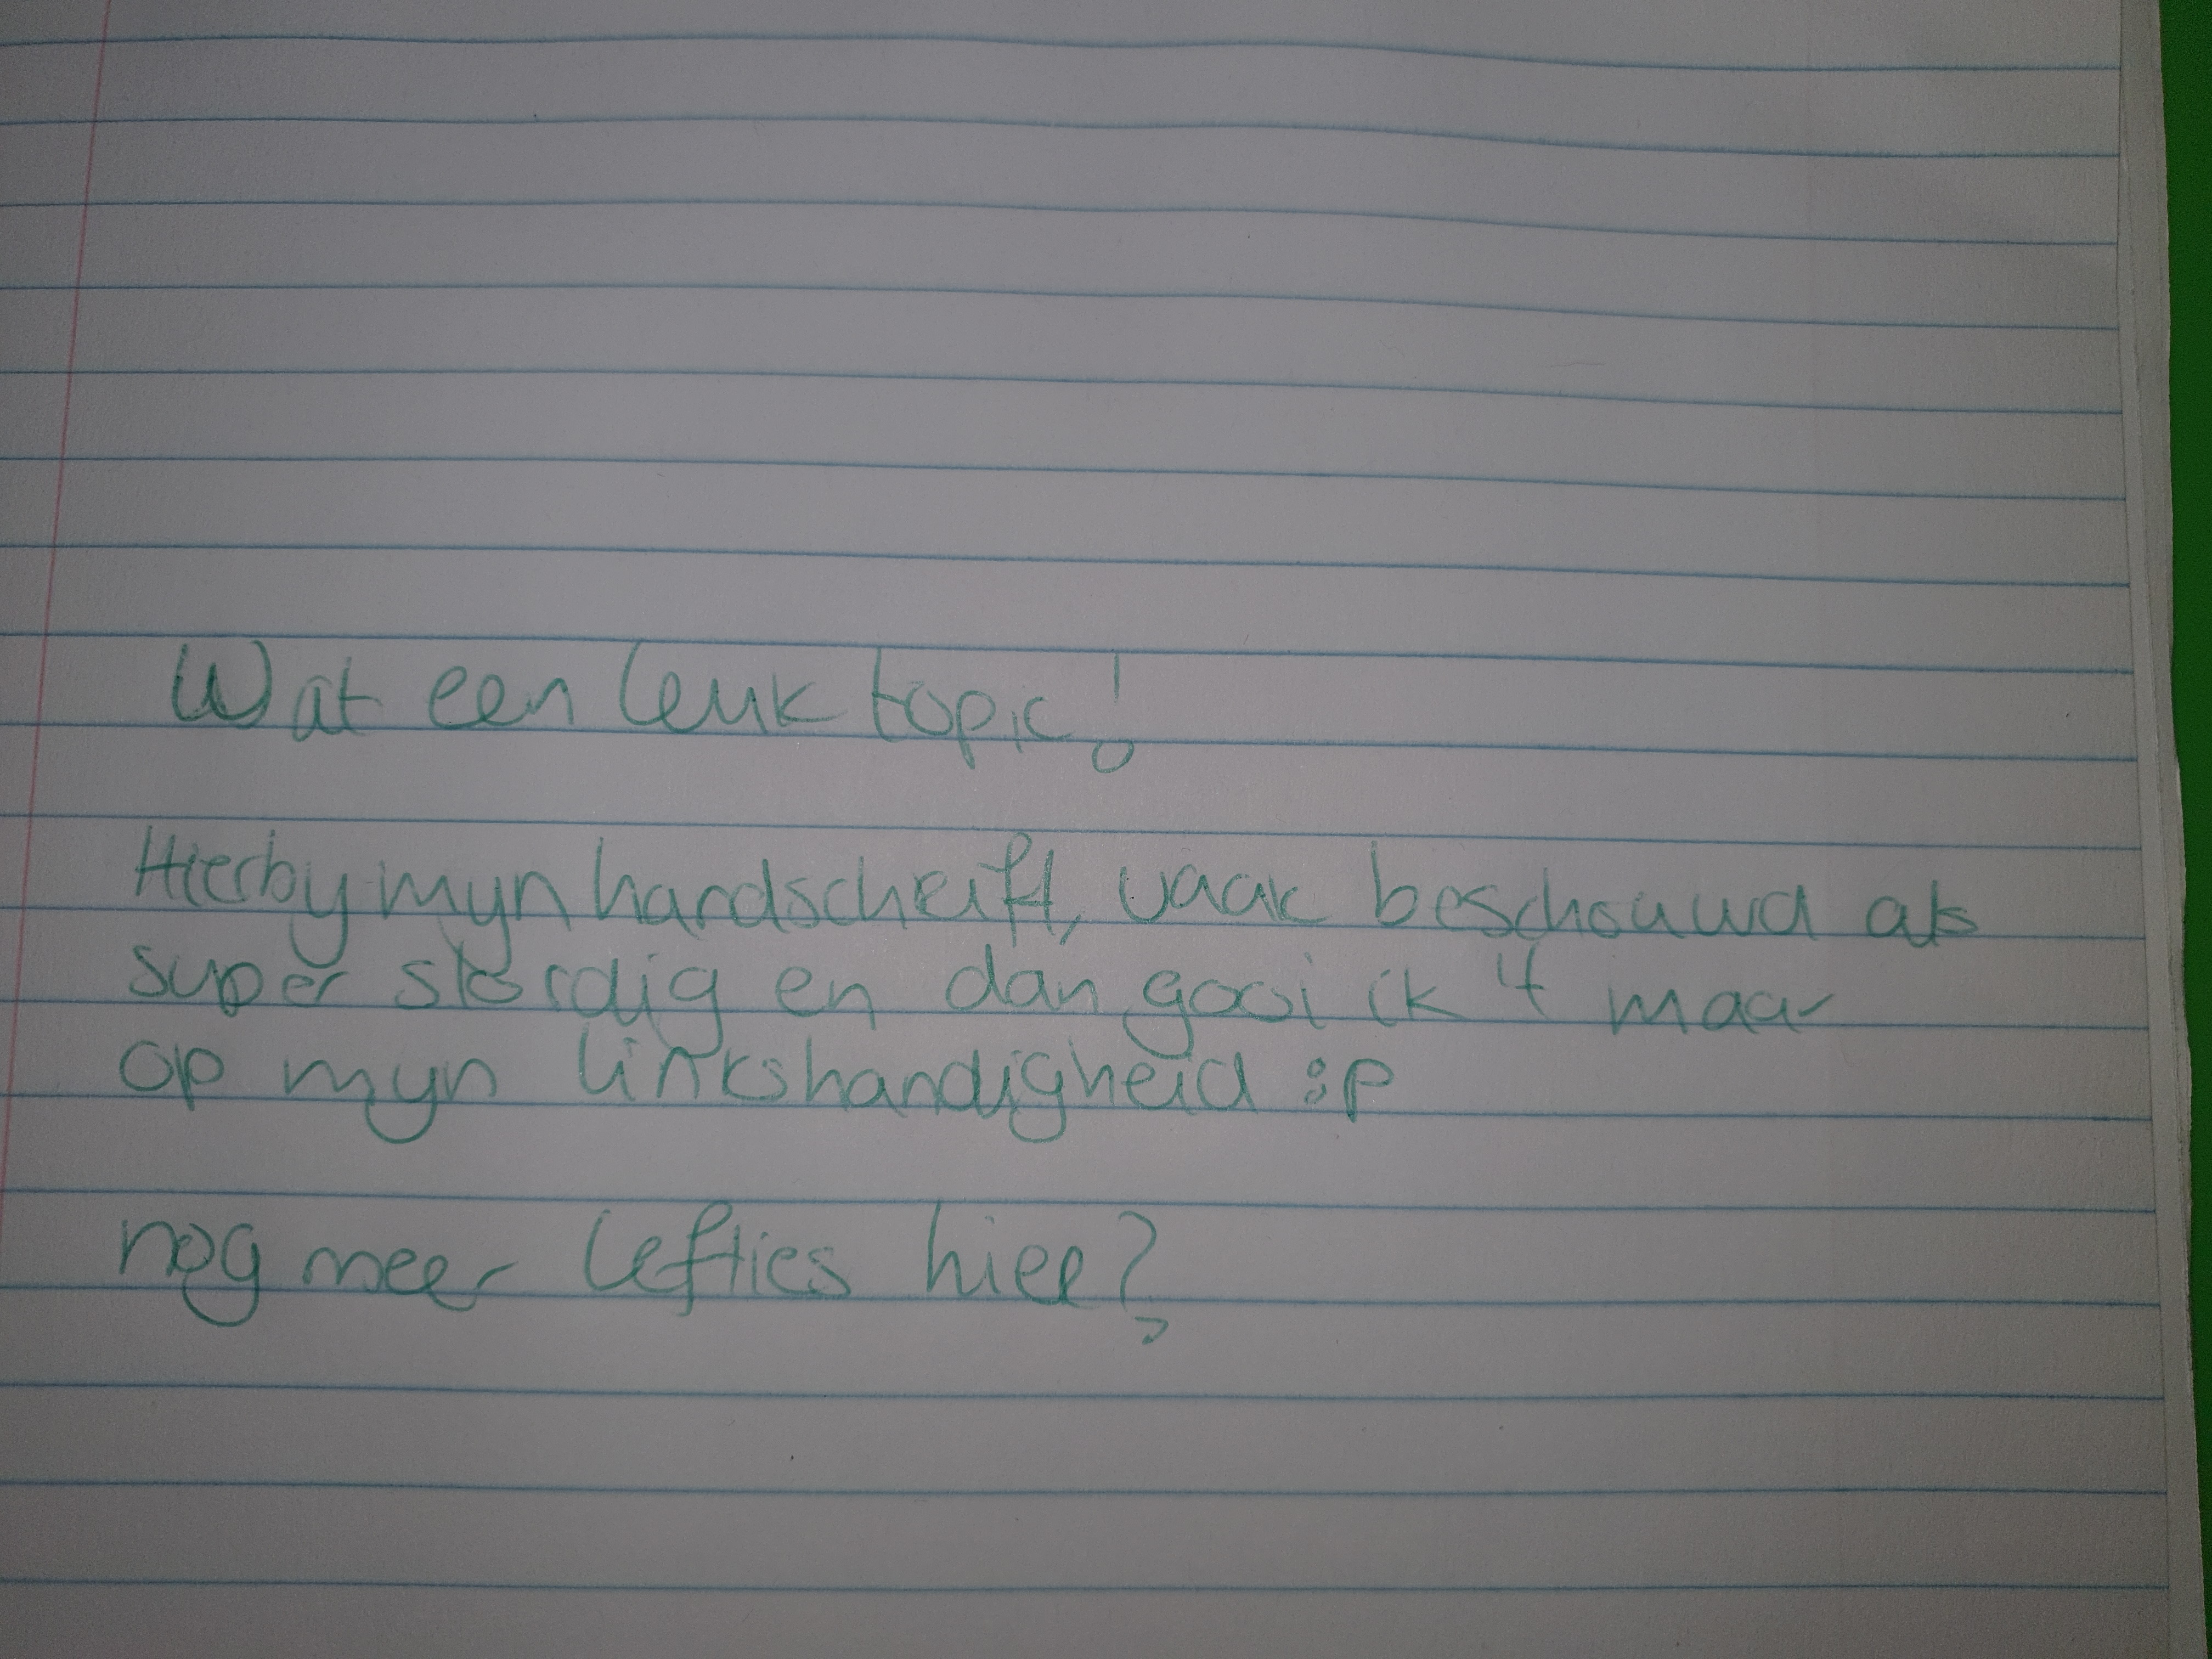 Wat een leuk topic!
Hierby myn handschrift, vaak beschouwd als
super slordig en dan gooi ik 't maar
op myn linkshandigheid :p
nog meer lefties hier?